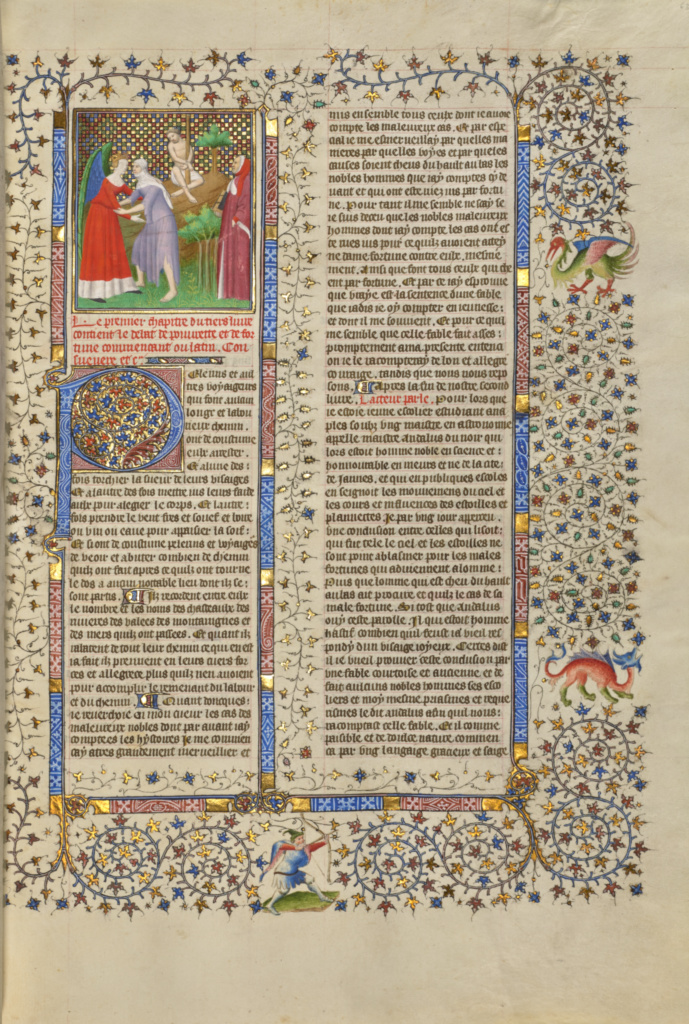 Le premier chapitre du tiers livre
contient le debat de povrete et de for
tune commencant ou latin. Con
suevere etc
Elerins et aul
tres voyageurs
qui font aulcun
longr et labou
rieux chemin.
ont de coustume
eulx arrester.
Et alune des
fois torchier la sueur de leurs visaiges
Et alautre des fois mettre jus leurs fards
aulx pour alegier le corps. Et lautre
fois prendre le vent fres et souef et boire
ou vin ou eaue pour appaisier la soif.
Et si ont de coustume pelerins et voyaiges
de veoir et adviser combien de chemin
quilz ont fait apres ce quilz ont tourne
le dos a aucun notable lieu dont ilz se
sont partis. Ilz recordent entre eulx
le nombre et les noms des chasteaulx des
rivieres des valees des montaingnes et
des mers quilz ont passees. Et quant ilz
ralatent de tout leur chemin ce qui en est
ja fait ilz prennent en leurs cuers for
ces et allegrece plus quilz nen avoient
pour accomplir le remenant du labour
et du chemin. Quant doncques
je revercheie en mon cueur les cas des
maleureux nobles dont par avant jay
comptees les hystoires je me commen
cay a tres grandement merveillier et
mis ensemble tous ceulx dont je avoie
compte les maleureux cas. Et par espe
cial je me esmerveillay par quelles ma
nieres par quelles voyes et par quelles
causes soient cheus du hault au bas les
nobles hommes que jay comptes cy de
vant et qui ont este riez jus par fortu
ne. Pour tant il me semble ne scay se
je suis deceu que les nobles maleureux
hommes dont jay compte les cas ont este
de ries jus pour ce quilz avoient attey
ne dame fortune contre eulx mesme
ment. Ainsi que font tous ceulx qui che
ent par fortune. Et par ce jay esprouve
que vraye est la sentence dune fable
que jadis je oy compter en jeunesse
et dont il me souvient. Et pour ce quil
me semble que celle fable fait asses
promptement a ma presente entencion
on je le racompteray de lon et allegre
couraige. tandis que nous nous repo
sons. Apres la fin de nostre second
livre. Lacteur parle. Pour lors que
je estoie jeune escolier estudiant a na
ples soubz ung maistre en astronomie
appelle maistre andalus du noir qui
lors estoit homme noble en science et
honnourable en meurs et ne de la cite
de Jannes, et qui en publiques escoles
enseignoit les mouvemens du ciel et
les cours et influences des estoilles et
planettes. Je par ung jour apperceu
une conclusion entre celles quil lisoit
qui fut telle le ciel et les estoilles ne
sont point a blasmer pour les males
fortunes qui adviennent a lomme
Puis que lomme qui est cheu du hault
au las ait prouvre et quilz le cas de sa
male fortune. Si tost que Andalus
ouy ceste parolle. Il qui estoit homme
hastif combien quil feust ja vieil res
pondy dun visaige joyeux. Certes dist
il je vueil prouver ceste conclusion par
une fable courtoise et ancienne. et de
fait aulcuns nobles hommes ses esco
liers et moy mesme priasmes et reque
rismes ledit andalus affin quil nous
racomptast celle fable. Et il comme
paisible et de doulce nature commen
ca par ung langaige gracieux et saige